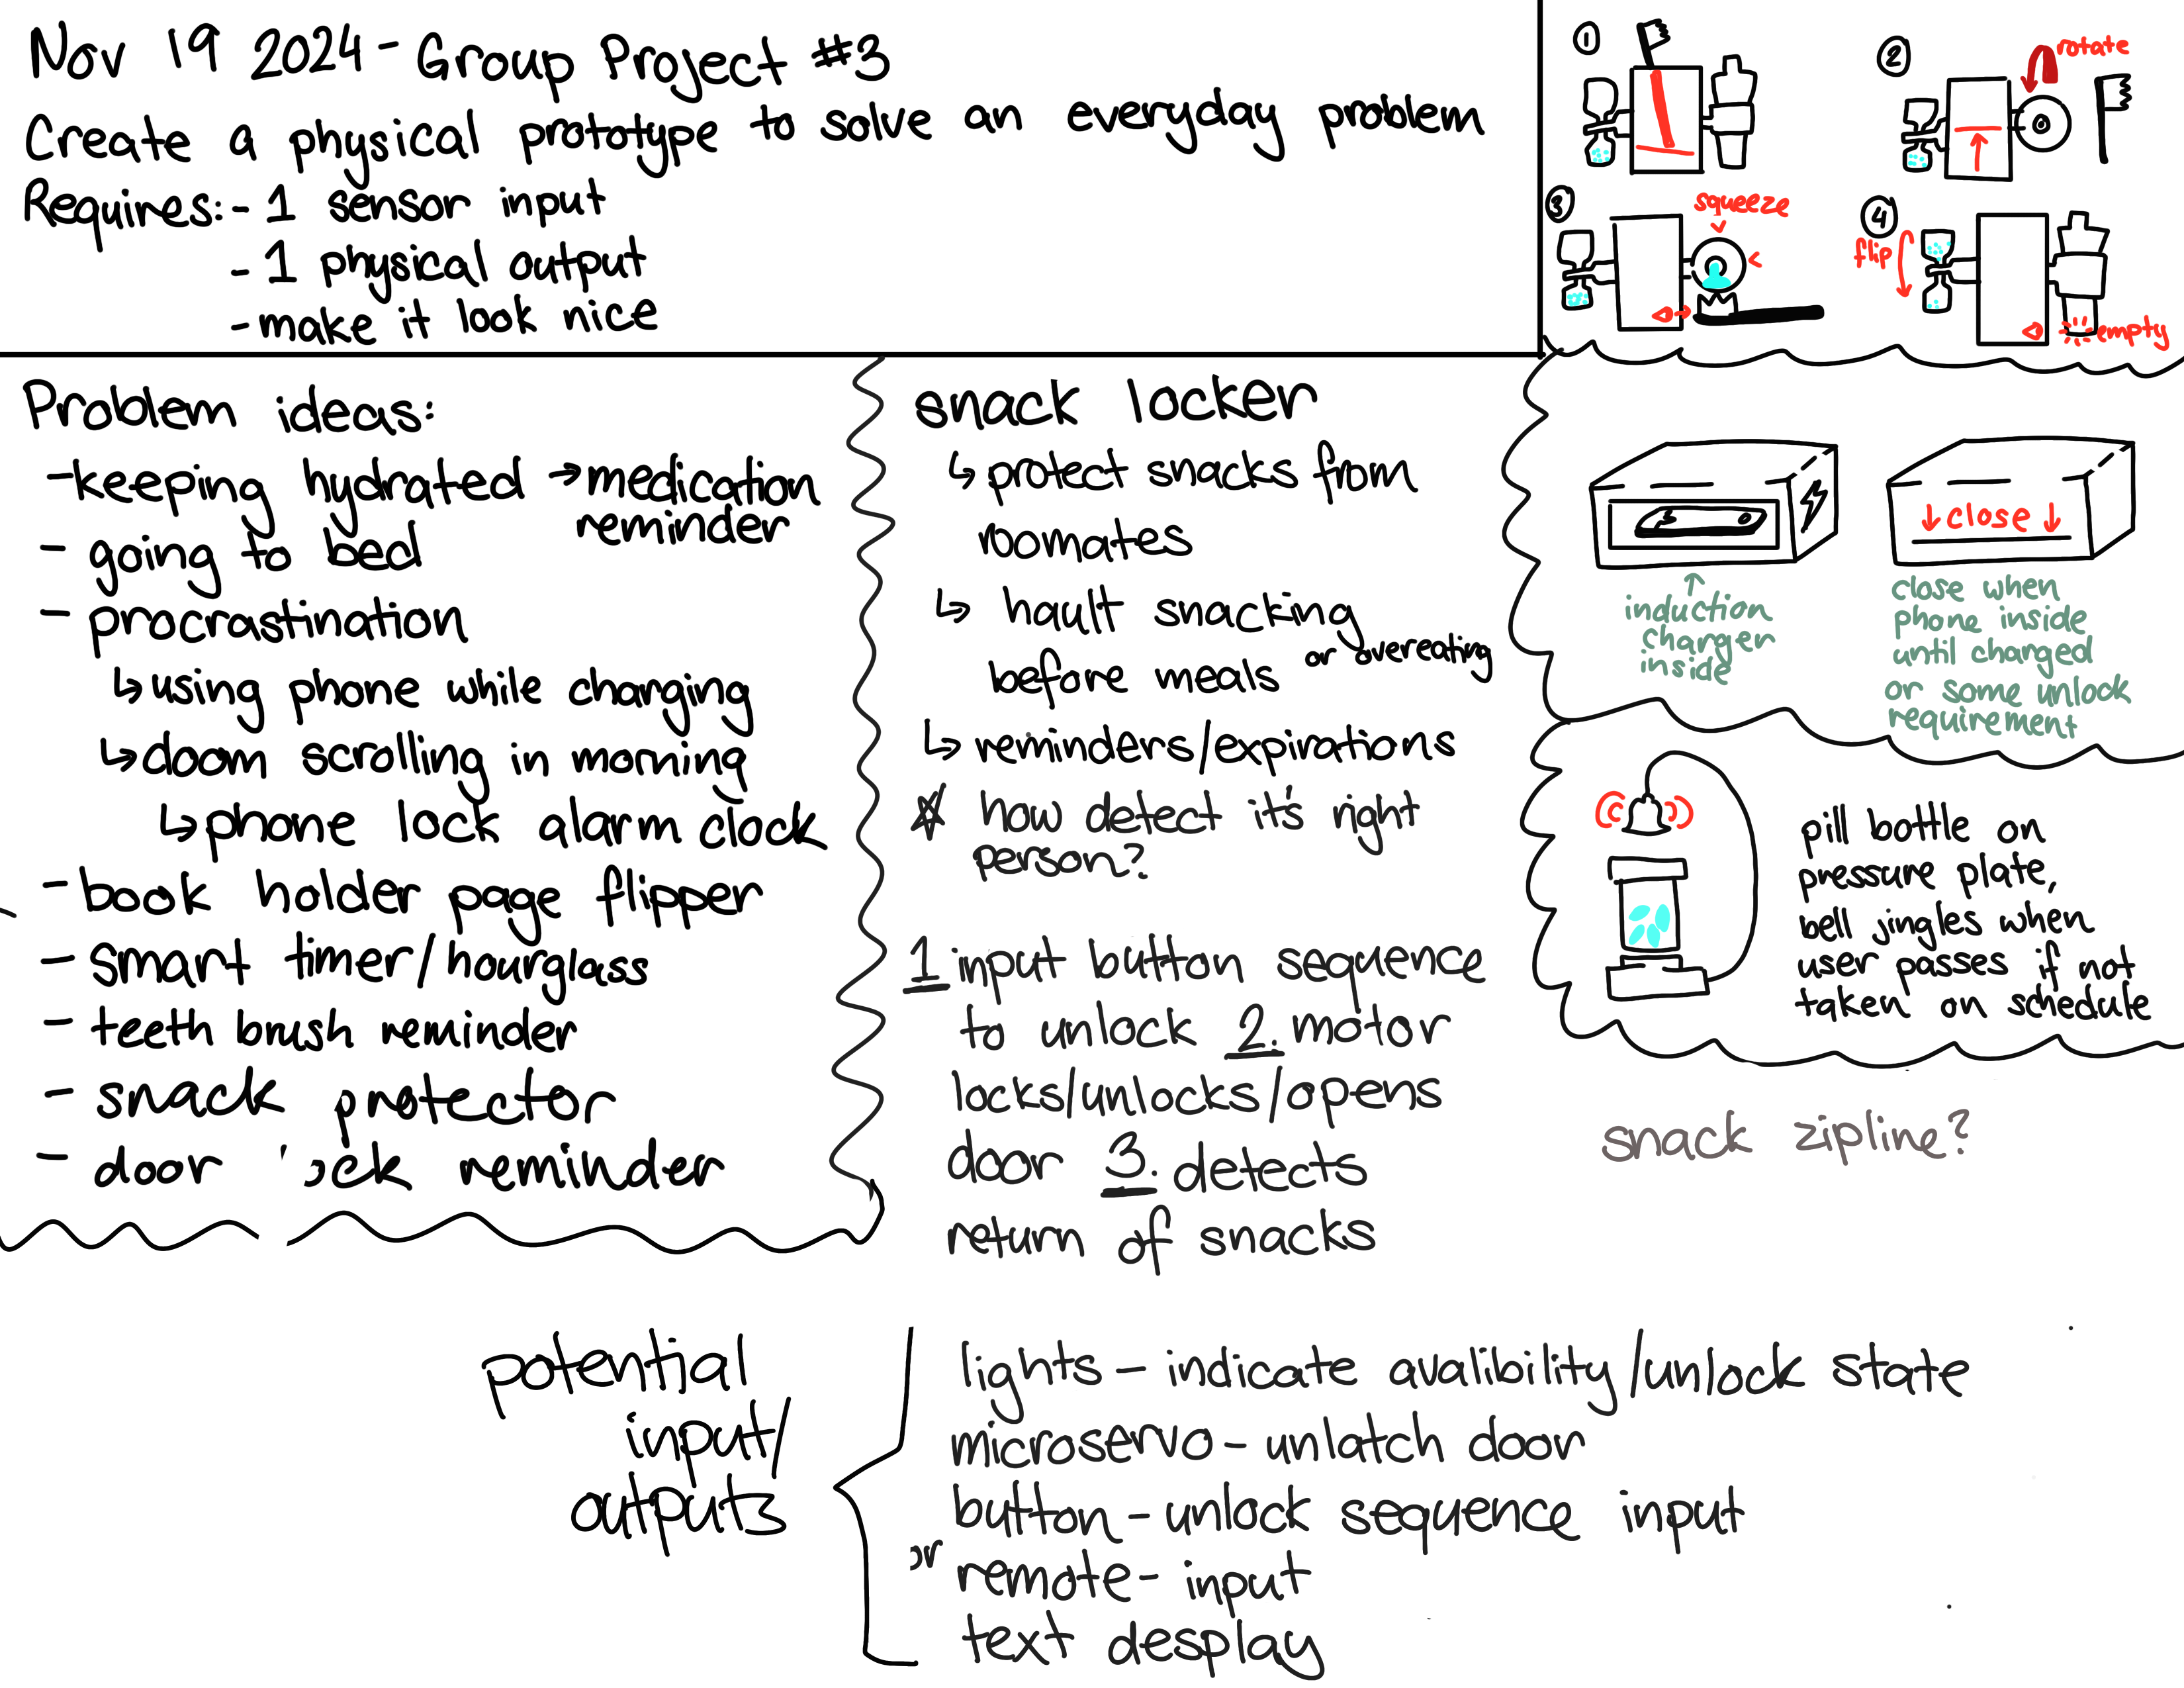 Nov 19 2024 - Group Project #3
Create a physical prototype to solve an everyday problem
Requires: - 1 sensor input
- 1 physical output
- make it look nice
①
②
rotate
③
squeeze
④
flip
empty
Problem ideas:
- keeping hydrated → medication
reminder
- going to bed
- procrastination
↳ using phone while charging
↳ doom scrolling in morning
↳ phone lock alarm clock
- book holder page flipper
- smart timer/hourglass
- teeth brush reminder
- snack protector
- door reminder
snack locker
↳ protect snacks from
roomates
↳ hault snacking
before meals or overeating
↳ reminders/expirations
☆ how detect it's right
person?
1 input button sequence
to unlock 2. motor
locks/unlocks/opens
door 3. detects
return of snacks
↓ close ↓
↑
induction
charger
inside
close when
phone inside
until charged
or some unlock
requirement
pill bottle on
pressure plate,
bell jingles when
user passes if not
taken on schedule
snack zipline?
potential
input/
outputs
lights - indicate avalibility/unlock state
microservo - unlatch door
button - unlock sequence input
or remote - input
text desplay